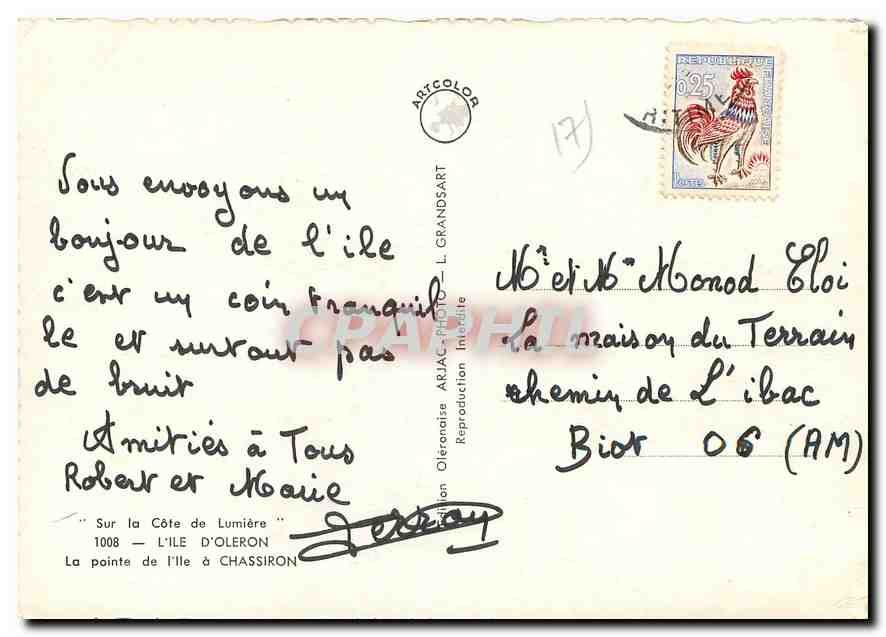 Vous envoyons un
bonjour de l'ile
c'est un coin tranquil
le et surtout pas
de bruit
Amitiés à Tous
Robert et Marie
" Sur la Côte de Lumière "
1008 — L'ILE D'OLERON
La pointe de l'Ile à CHASSIRON
ARTCOLOR
Edition Oléronaise ARJAC-PHOTO — L. GRANDSART
Reproduction Interdite
CPAPHIL
17)
REPUBLIQUE FRANÇAISE
0,25
POSTES
Mr et Mme Monod Eloi
La maison du Terrain
chemin de L'ibac
Biot 06 (AM)